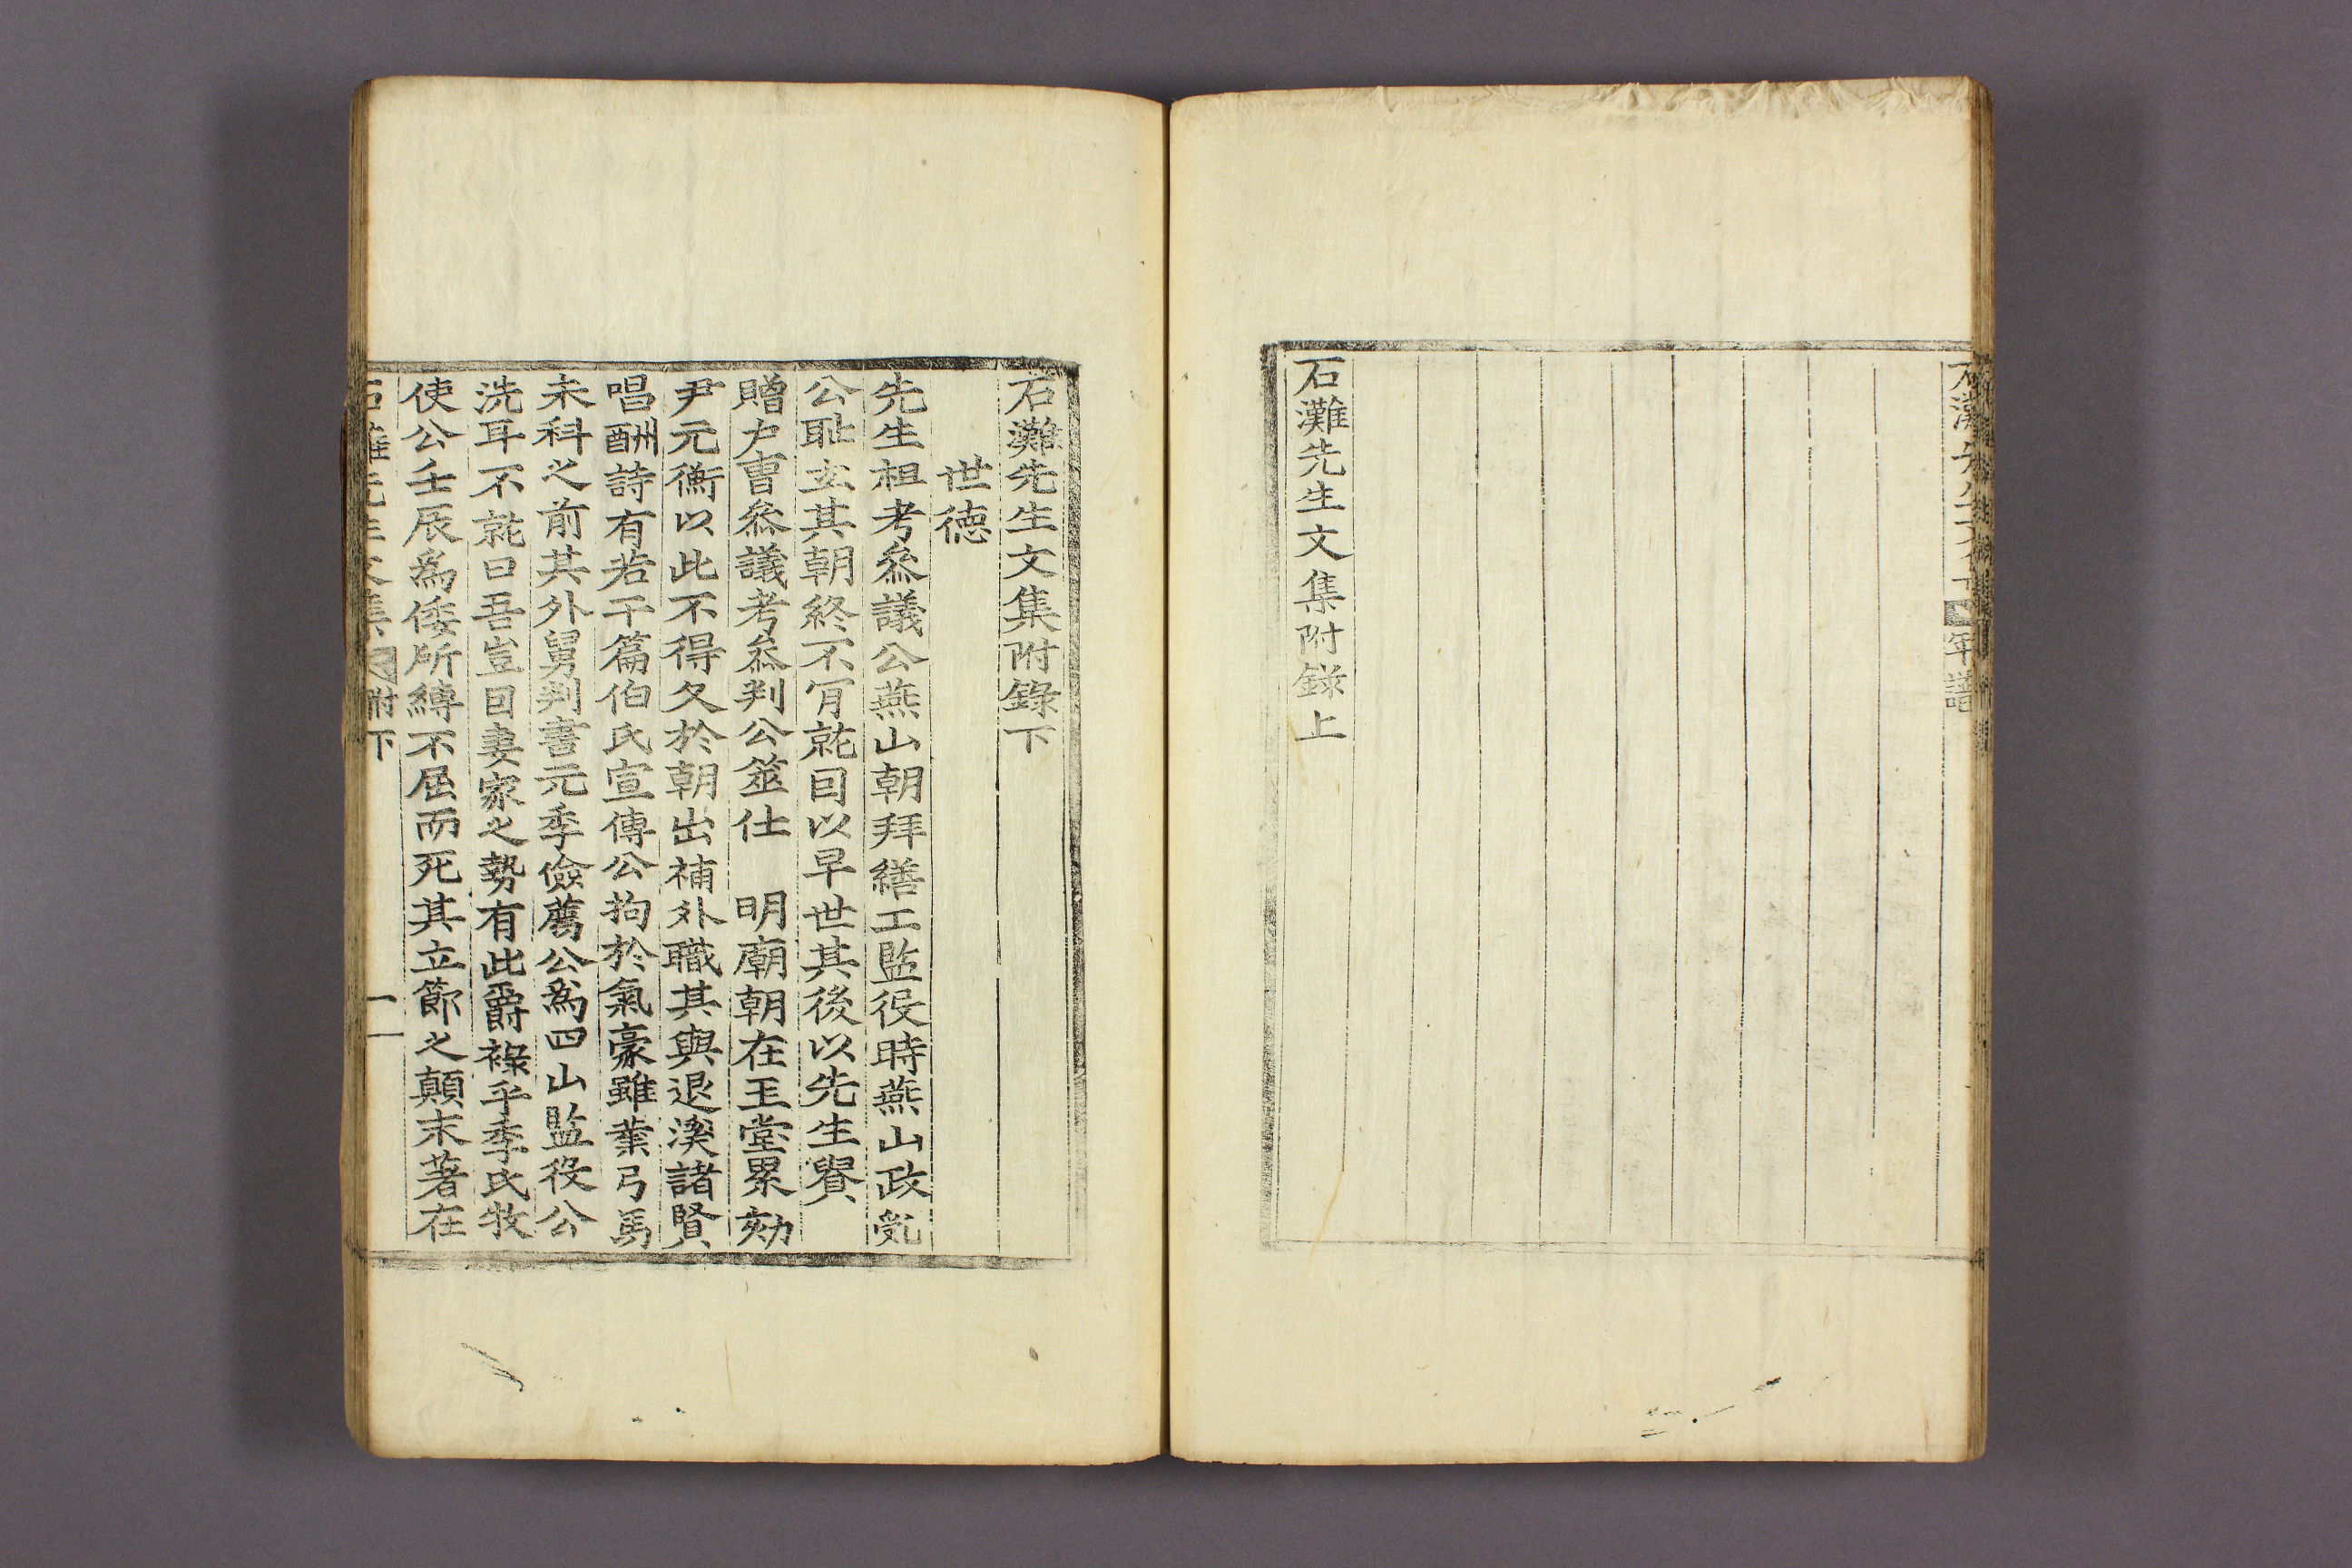 石灘先生文集附錄上
石灘先生文集附錄下
世德
先生祖考叅議公燕山朝拜繕工監役時燕山政亂
公耻立其朝終不肎就因以早世其後以先生貴
贈户曹叅議考叅判公筮仕　明廟朝在玉堂累劾
尹元衡以此不得久於朝出補外職其與退溪諸賢
唱酬詩有若干篇伯氏宣傳公拘於氣豪雖業弓馬
未科之前其外舅判書元季儉薦公爲四山監役公
洗耳不就曰吾豈因妻家之勢有此爵祿乎季氏牧
使公壬辰爲倭所縛不屈而死其立節之顛末著在
附下
一